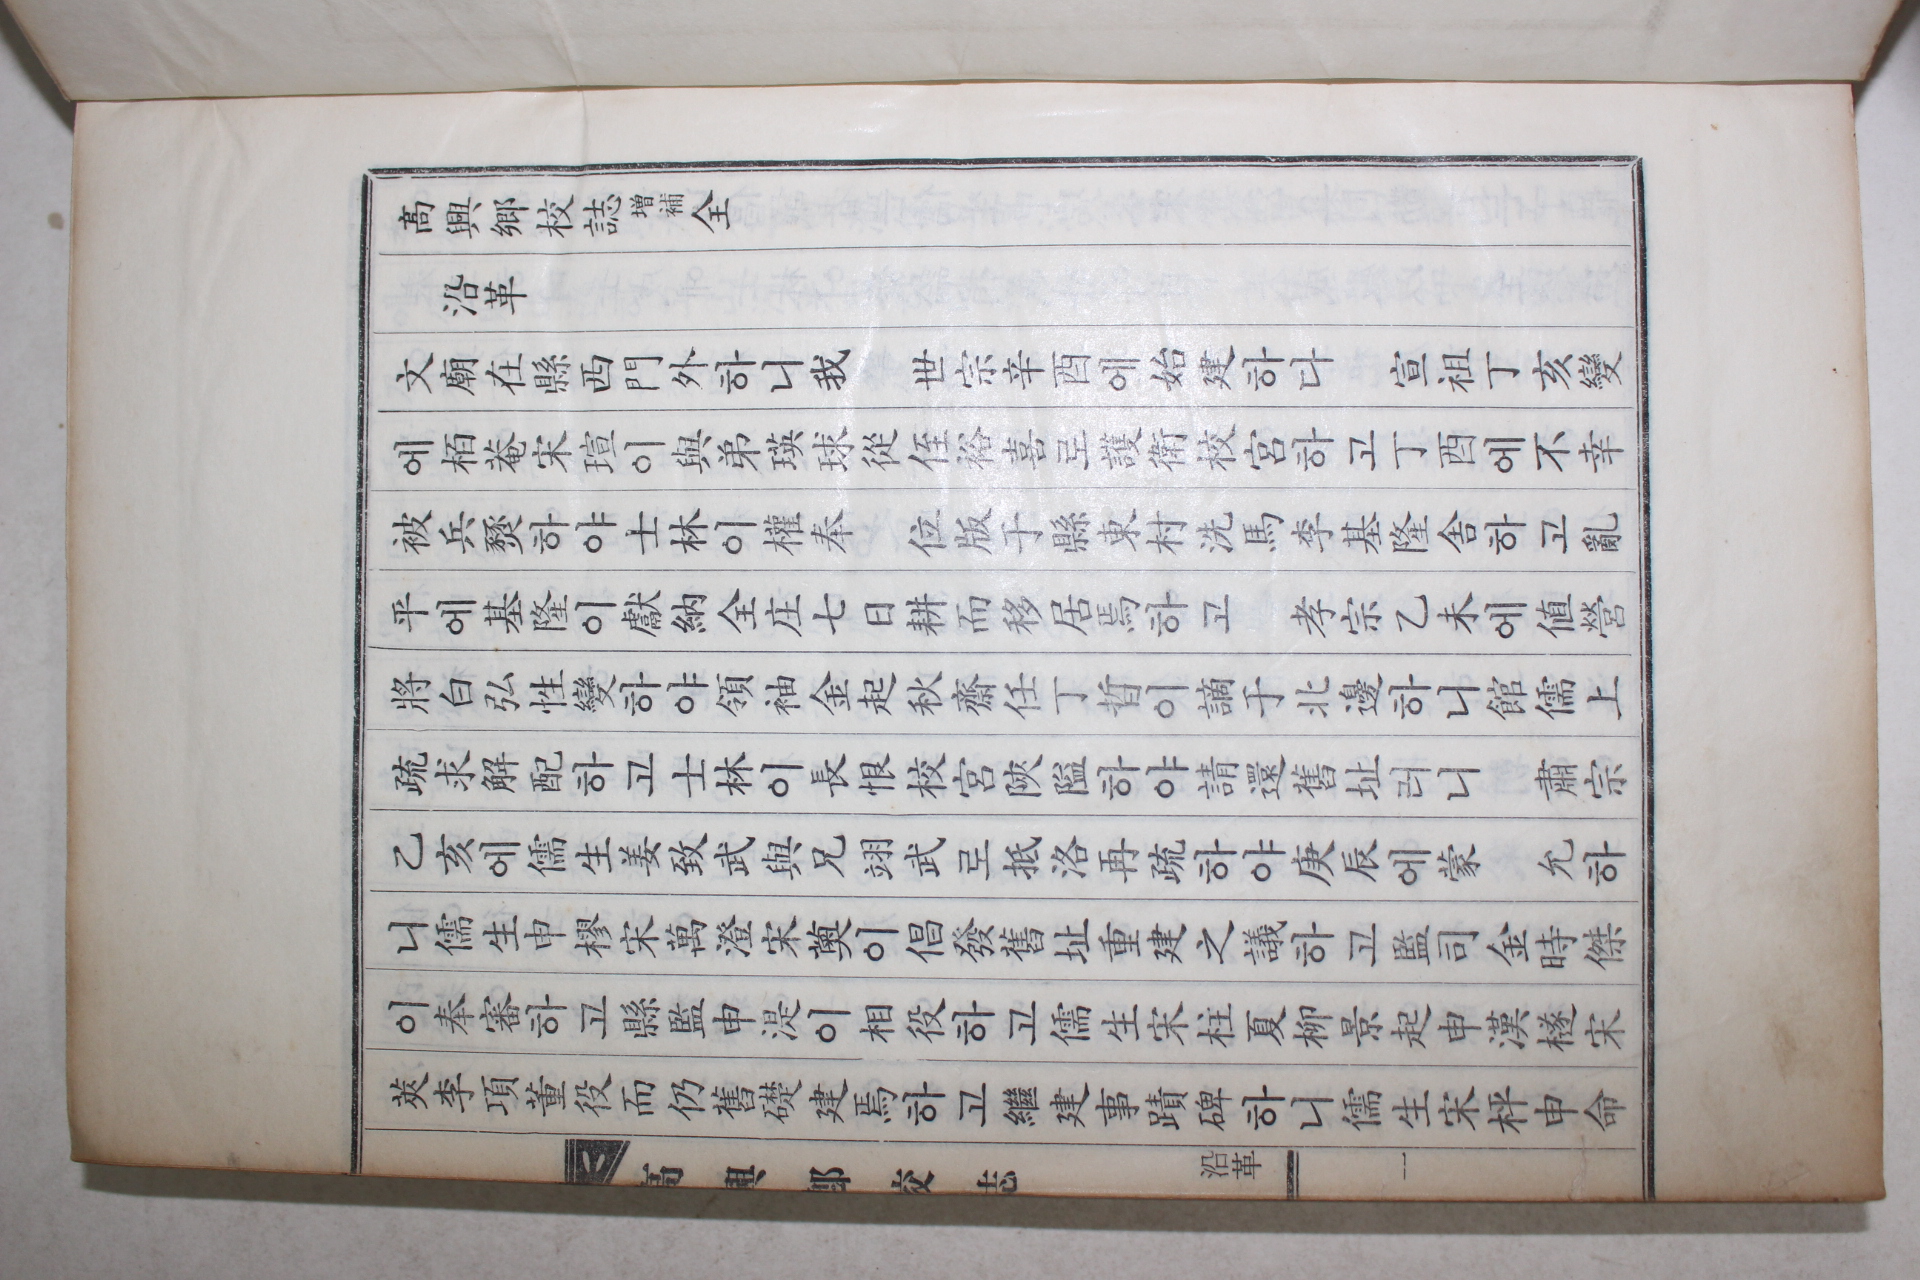 高興鄕校誌增補全
沿革
文廟在縣西門外하니我 世宗辛酉에始建하다 宣祖丁亥變
에栢菴宋瑄이與弟瑛球從侄裕喜로護衛校宮하고丁酉에不幸
被兵燹하야士林이權奉 位版于縣東村洗馬李基隆舍하고亂
平에基隆이獻納全庄七日耕而移居焉하고 孝宗乙未에値營
將白弘性變하야領袖金起秋齋任丁哲이謫于北邊하니館儒上
疏求解配하고士林이長恨校宮陜隘하야請還舊址러니 肅宗
乙亥에儒生姜致武與兄翊武로抵洛再疏하야庚辰에蒙 允하
니儒生申樛宋萬澄宋蓂이倡發舊址重建之議하고監司金時傑
이奉審하고縣監申湜이相役하고儒生宋柱夏柳景起申漢檖宋
莢李項董役而仍舊礎建焉하고繼建事蹟碑하니儒生宋枰申命
高興鄕校誌 沿革 一